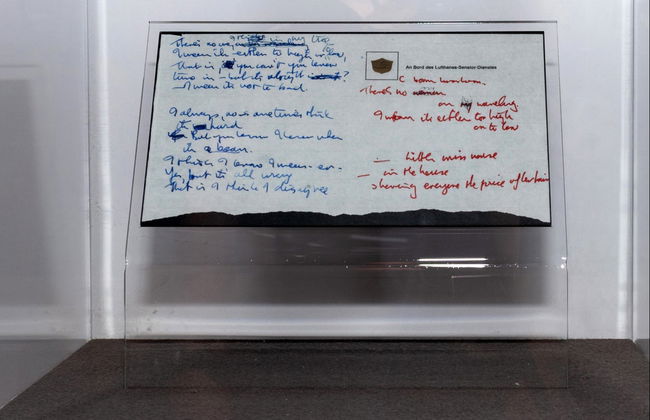 There's no one in my tree
I mean it's either to high or low,
that is, you can't you know
tune in - but it's alright
I mean it's not to bad.
I always, no sometimes think
its hard
But you know I know when
its a bean.
I think I know I mean - er -
Yes, but its all wrong
that is I think I disagree
An Bord des Lufthansa-Senator-Dienstes
There's no
on my wavelength
I mean its either too high
or too low
— little miss mouse
— in the house
showing everyone the price of